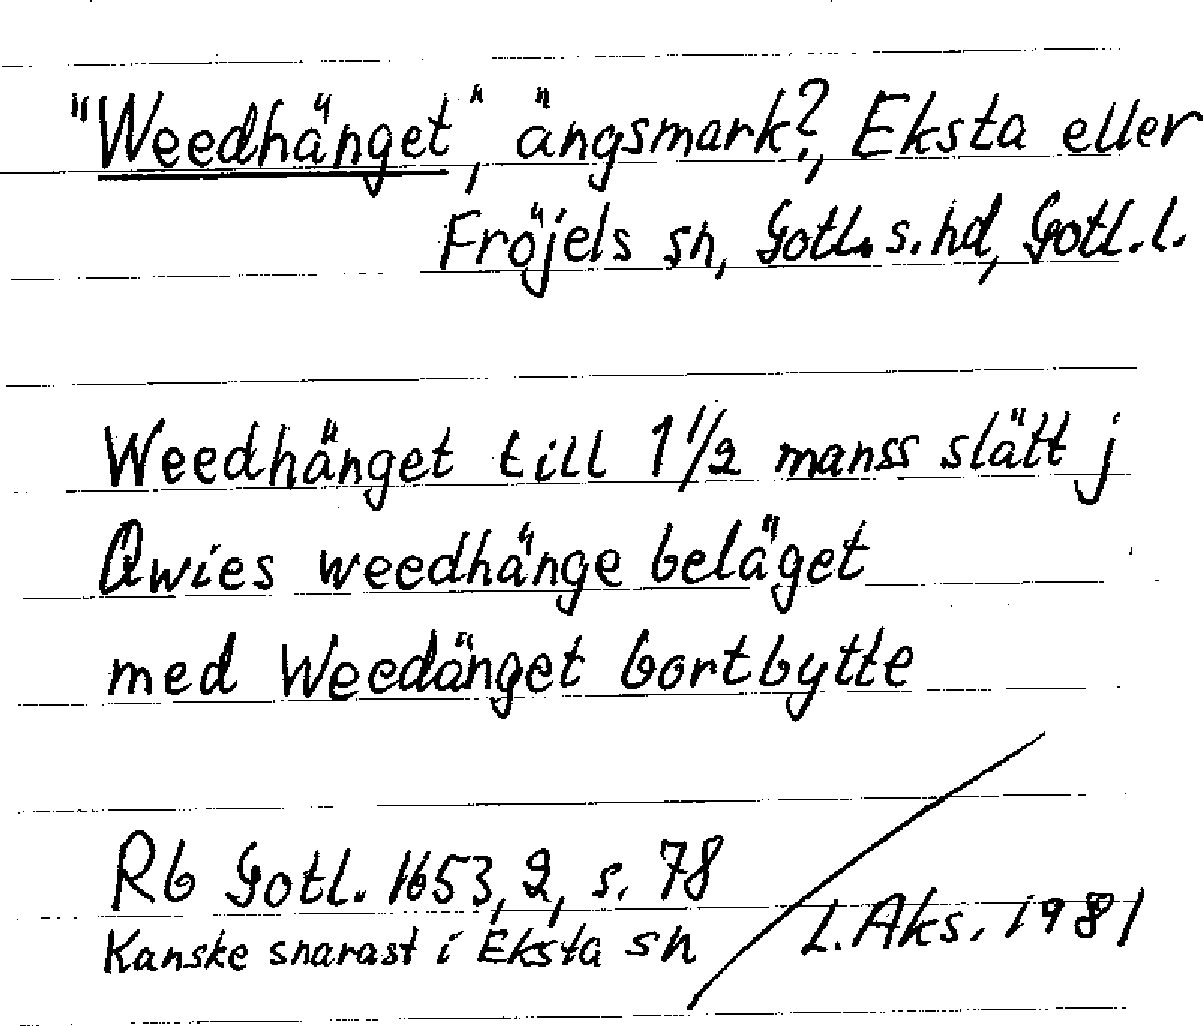 "Weedhänget", ängsmark?, Eksta eller
Fröjels sn, Gotl. s. hd, Gotl. l.
Weedhänget till 1 1/2 manss slätt j
Qwies weedhänge beläget
med Weedänget bortbytte
Rb Gotl. 1653, 2, s. 78
Kanske snarast i Eksta sn
L. Aks. 1981